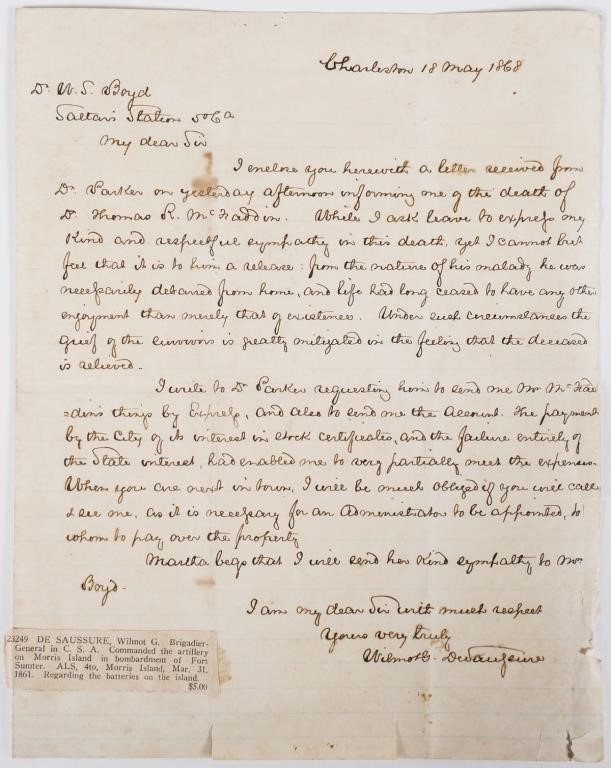 Charleston 18 May 1868
Dr. W. S. Boyd
Salters Station So Ca
My dear Sir
I enclose you herewith a letter received from
Dr. Parker on yesterday afternoon informing me of the death of
Dr. Thomas R. McFaddin. While I ask leave to express my
kind and respectful sympathy in this death, yet I cannot but
feel that it is to him a release: from the nature of his malady he was
necessarily debarred from home, and life had long ceased to have any other
enjoyment than merely that of existence. Under such circumstances the
grief of the survivors is greatly mitigated in the feeling that the deceased
is relieved.
I write to Dr. Parker requesting him to send me Mr McFad
=din's things by Express, and also to send me the account. The payment
by the City of its interest in stock certificates, and the failure entirely of
the State interest, had enabled me to very partially meet the expenses.
When you are next in town, I will be much obliged if you will call
& see me, as it is necessary for an administrator to be appointed, to
whom to pay over the property
Martha begs that I will send her kind sympathy to Mrs
Boyd.
I am my dear Sir with much respect
Yours very truly
Wilmot G. DeSaussure
23249 DE SAUSSURE, Wilmot G. Brigadier-
General in C. S. A. Commanded the artillery
on Morris Island in bombardment of Fort
Sumter. ALS, 4to, Morris Island, Mar. 31,
1861. Regarding the batteries on the island.
$5.00